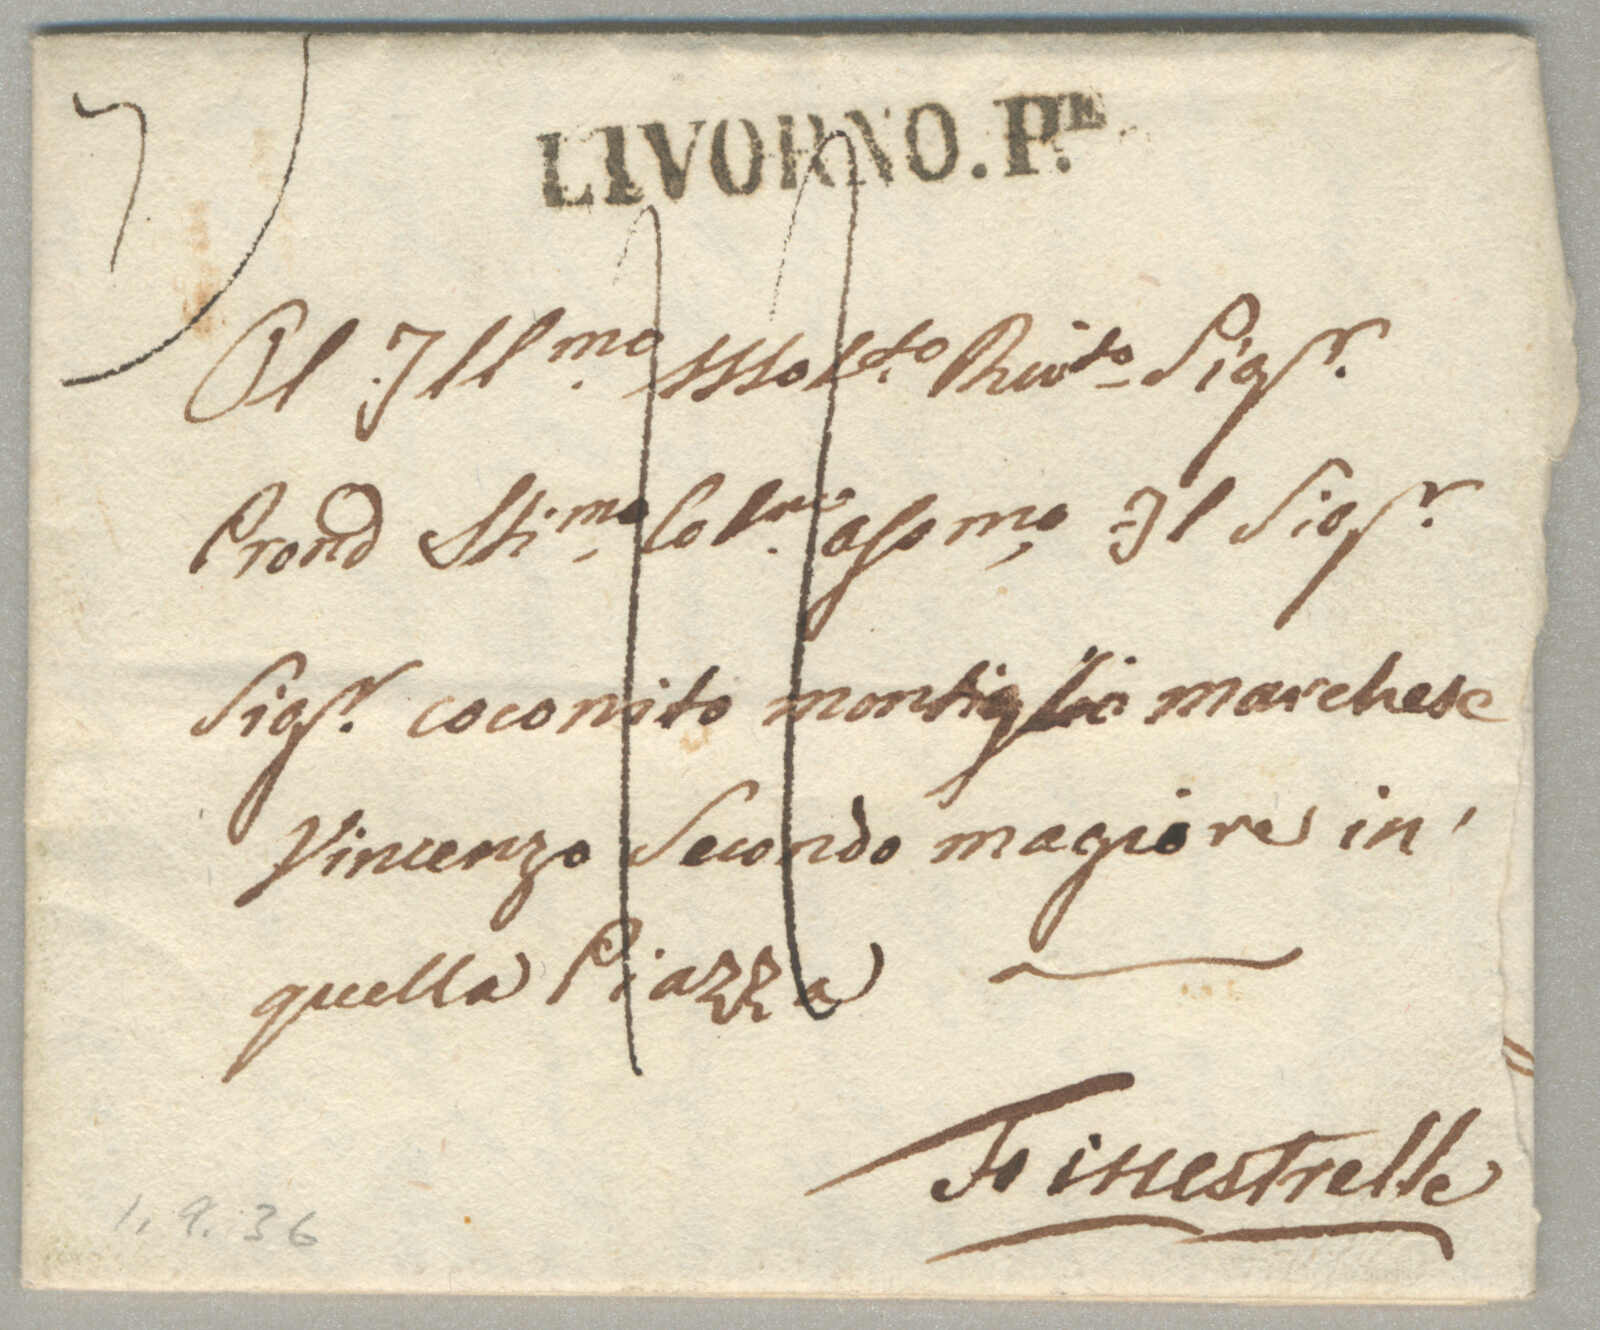 LIVORNO. P.TE
Al Ill.mo Molto Rev.to Sig.r
Pron.d Stim.mo Col.mo Il Sig.r
Sig.r coconito montiglio marchese
Vincenzo Secondo magiore in
quella Piazza
Finestrelle
1. 9. 36